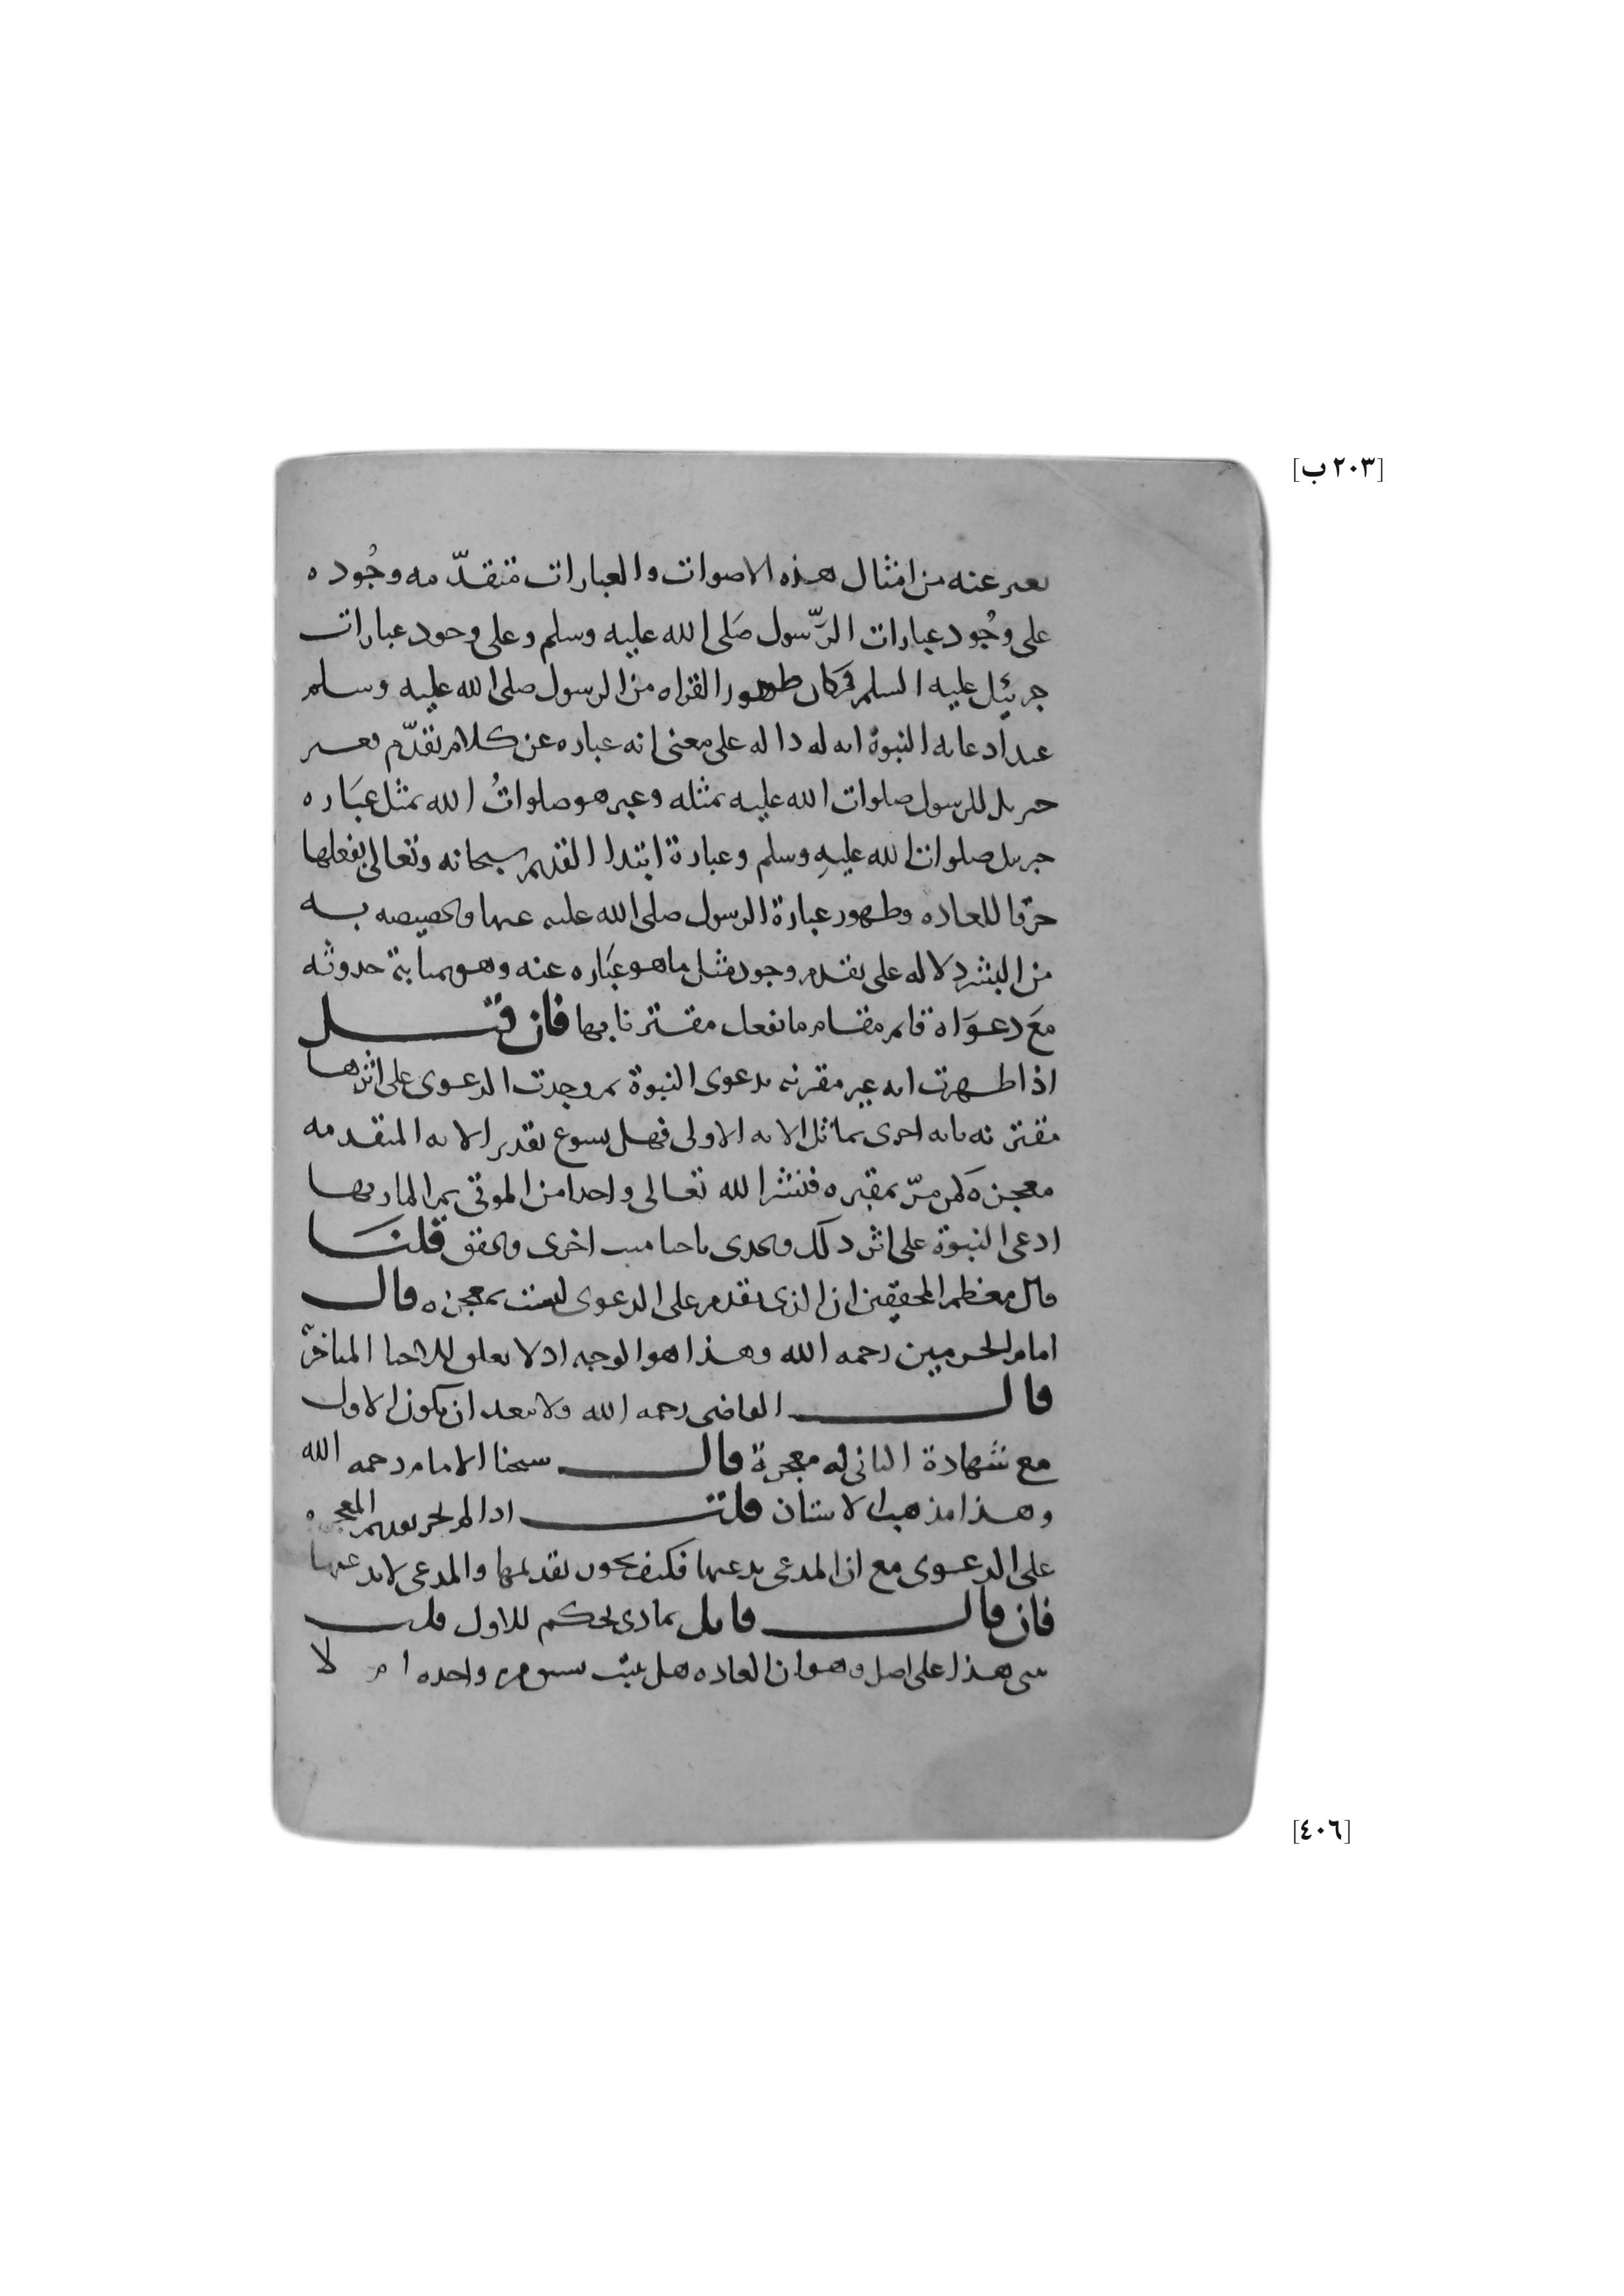 [٢٠٣ ب]
يعبر عنه من امثال هذه الاصوات والعبارات متقدّمه وجُوده
على وجُود عبارات الرّسول صَلى الله عليه وسلم وعلى وجود عبارات
جبرئيل عليه السلم فكان ظهور القراه من الرسول صلى الله عليه وسلم
عند ادعايه النبوة ايه له داله على معنى انه عباره عن كلام تقدّم فعبر
جبريل للرسول صلوات الله عليه بمثله وعبر هو صلواتُ الله بمثل عبَاره
جبريل صلوات الله عليهِ وسلم وعبارة ابتدا القديم سبحانه وتعالى بفعلها
خرقا للعاده وظهور عبارة الرسول صلى الله عليه عنها وتخصيصه به
من البشر دلاله على تقدم وجود مثل ما هو عبَاره عنه وهو بمثابة حدوثه
مَع دعوَاه قام مقام ما تفعل مقترنا بها فان قيل
اذا ظهرت ايه غير مقرنه بدعوى النبوة ثم وجدت الدعوى على اثرها
مقترنه بايه اخرى تماثل الايه الاولى فهل يسوغ تقدير الايه المتقدمه
معجزه كمن مرّ بمقبره فنشر الله تعالى واحدا من الموتى ثم المار بها
ادعى النبوة على اثر ذلك وتحدى باحيا ميت اخرى وتحقق قلنَا
قال معظم المحققين ان الذى تقدم على الدعوى ليست بمعجزه قال
امام الحرمين رحمه الله وهذا هو الوجه اذ لا تعلق للاحيا المتاخر
قال القاضى رحمه الله ولا يبعد ان يكون الاول
مع شهادة الثانى له معجزة قال شيخنا الامام رحمه الله
وهذا مذهب الاستاذ قلت اذا لم يجز تقديم المعجزه
على الدعوى مع ان المدعى يدعيها فكيف يجوز تقديمها والمدعى لا يدعيها
فان قال قايل بماذى تحكم للاول قلت
يبنى هذا على اصل وهو ان العاده هل يثبت بمره واحده ام لا
[٤٠٦]